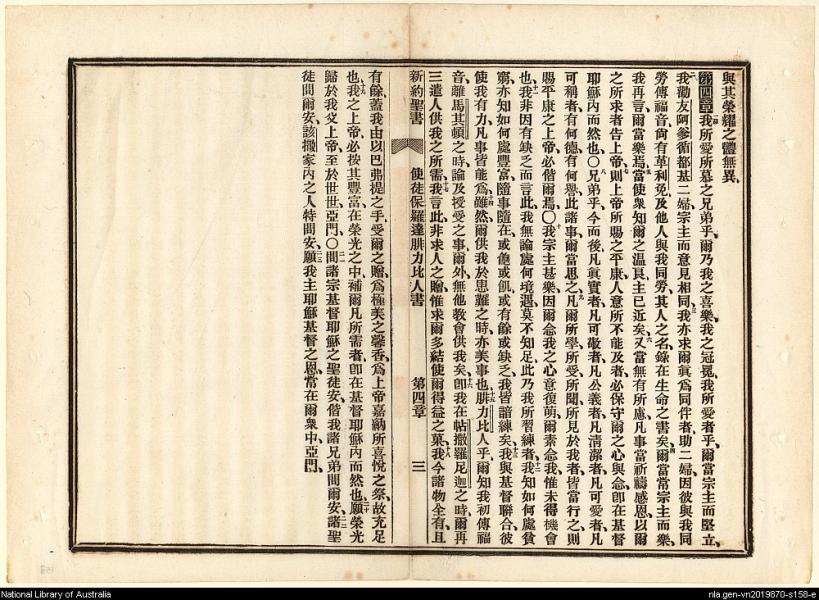 與其榮耀之體無異、
第四章我所愛所慕之兄弟乎、爾乃我之喜樂、我之冠冕、我所愛者乎、爾當宗主而堅立、
我勸友阿爹、循都基二婦、宗主而意見相同、我亦求爾真為同伴者、助二婦、因彼與我同
勞傳福音、尚有革利免、及他人與我同勞、其人之名、錄在生命之書矣、爾當常宗主而樂、
我再言、爾當樂焉、當使衆知爾之溫良、主已近矣、又當無有所慮、凡事當祈禱感恩、以爾
之所求者告上帝、則上帝所賜之平康、人意所不能及者、必保守爾之心與念、卽在基督
耶穌內而然也、○兄弟乎、今而後凡真實者、凡可敬者、凡公義者、凡清潔者、凡可愛者、凡
可稱者、有何德、有何譽、此諸事、爾當思之、凡爾所學、所受、所聞、所見於我者、皆當行之、則
賜平康之上帝、必偕爾焉、○我宗主甚樂、因爾念我之心、意復萌、爾素念我、惟未得機會
也、我非因有缺乏而言此、我無論處何境遇、莫不知足、此乃我所習練者、我知如何處貧
窮、亦知如何處豐富、隨事隨在、或飽或飢、或有餘、或缺乏、我皆諳練矣、我與基督聯合、彼
使我有力、凡事皆能為、雖然、爾供我於患難之時、亦美事也、腓力比人乎、爾知我初傳福
音、離馬其頓之時、論及授受之事、爾外無他教會供我矣、卽我在帖撒羅尼迦之時、爾再
三遣人、供我之所需、我言此、非求人之贈、惟求爾多結使爾得益之菓、我今諸物全有、且
新約聖書 使徒保羅達腓力比人書 第四章 三
有餘、蓋我由以巴弗提之手、受爾之贈、為極美之馨香、為上帝嘉納所喜悅之祭、故充足
也、我之上帝、必按其豐富、在榮光之中、補爾凡所需者、卽在基督耶穌內而然也、願榮光
歸於我父上帝、至於世世、亞門、○問諸宗基督耶穌之聖徒安、偕我諸兄弟問爾安、諸聖
徒問爾安、該撒家內之人特問安、願我主耶穌基督之恩、常在爾衆中、亞門、
National Library of Australia
nla.gen-vn2019870-s158-e